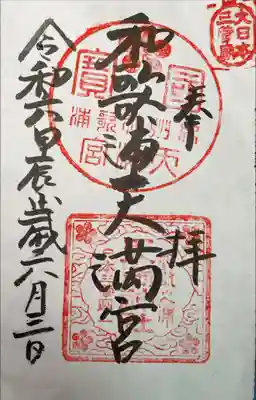 大日本
三菅廟
奉拝
和歌浦天満宮
令和六甲辰歳六月三日